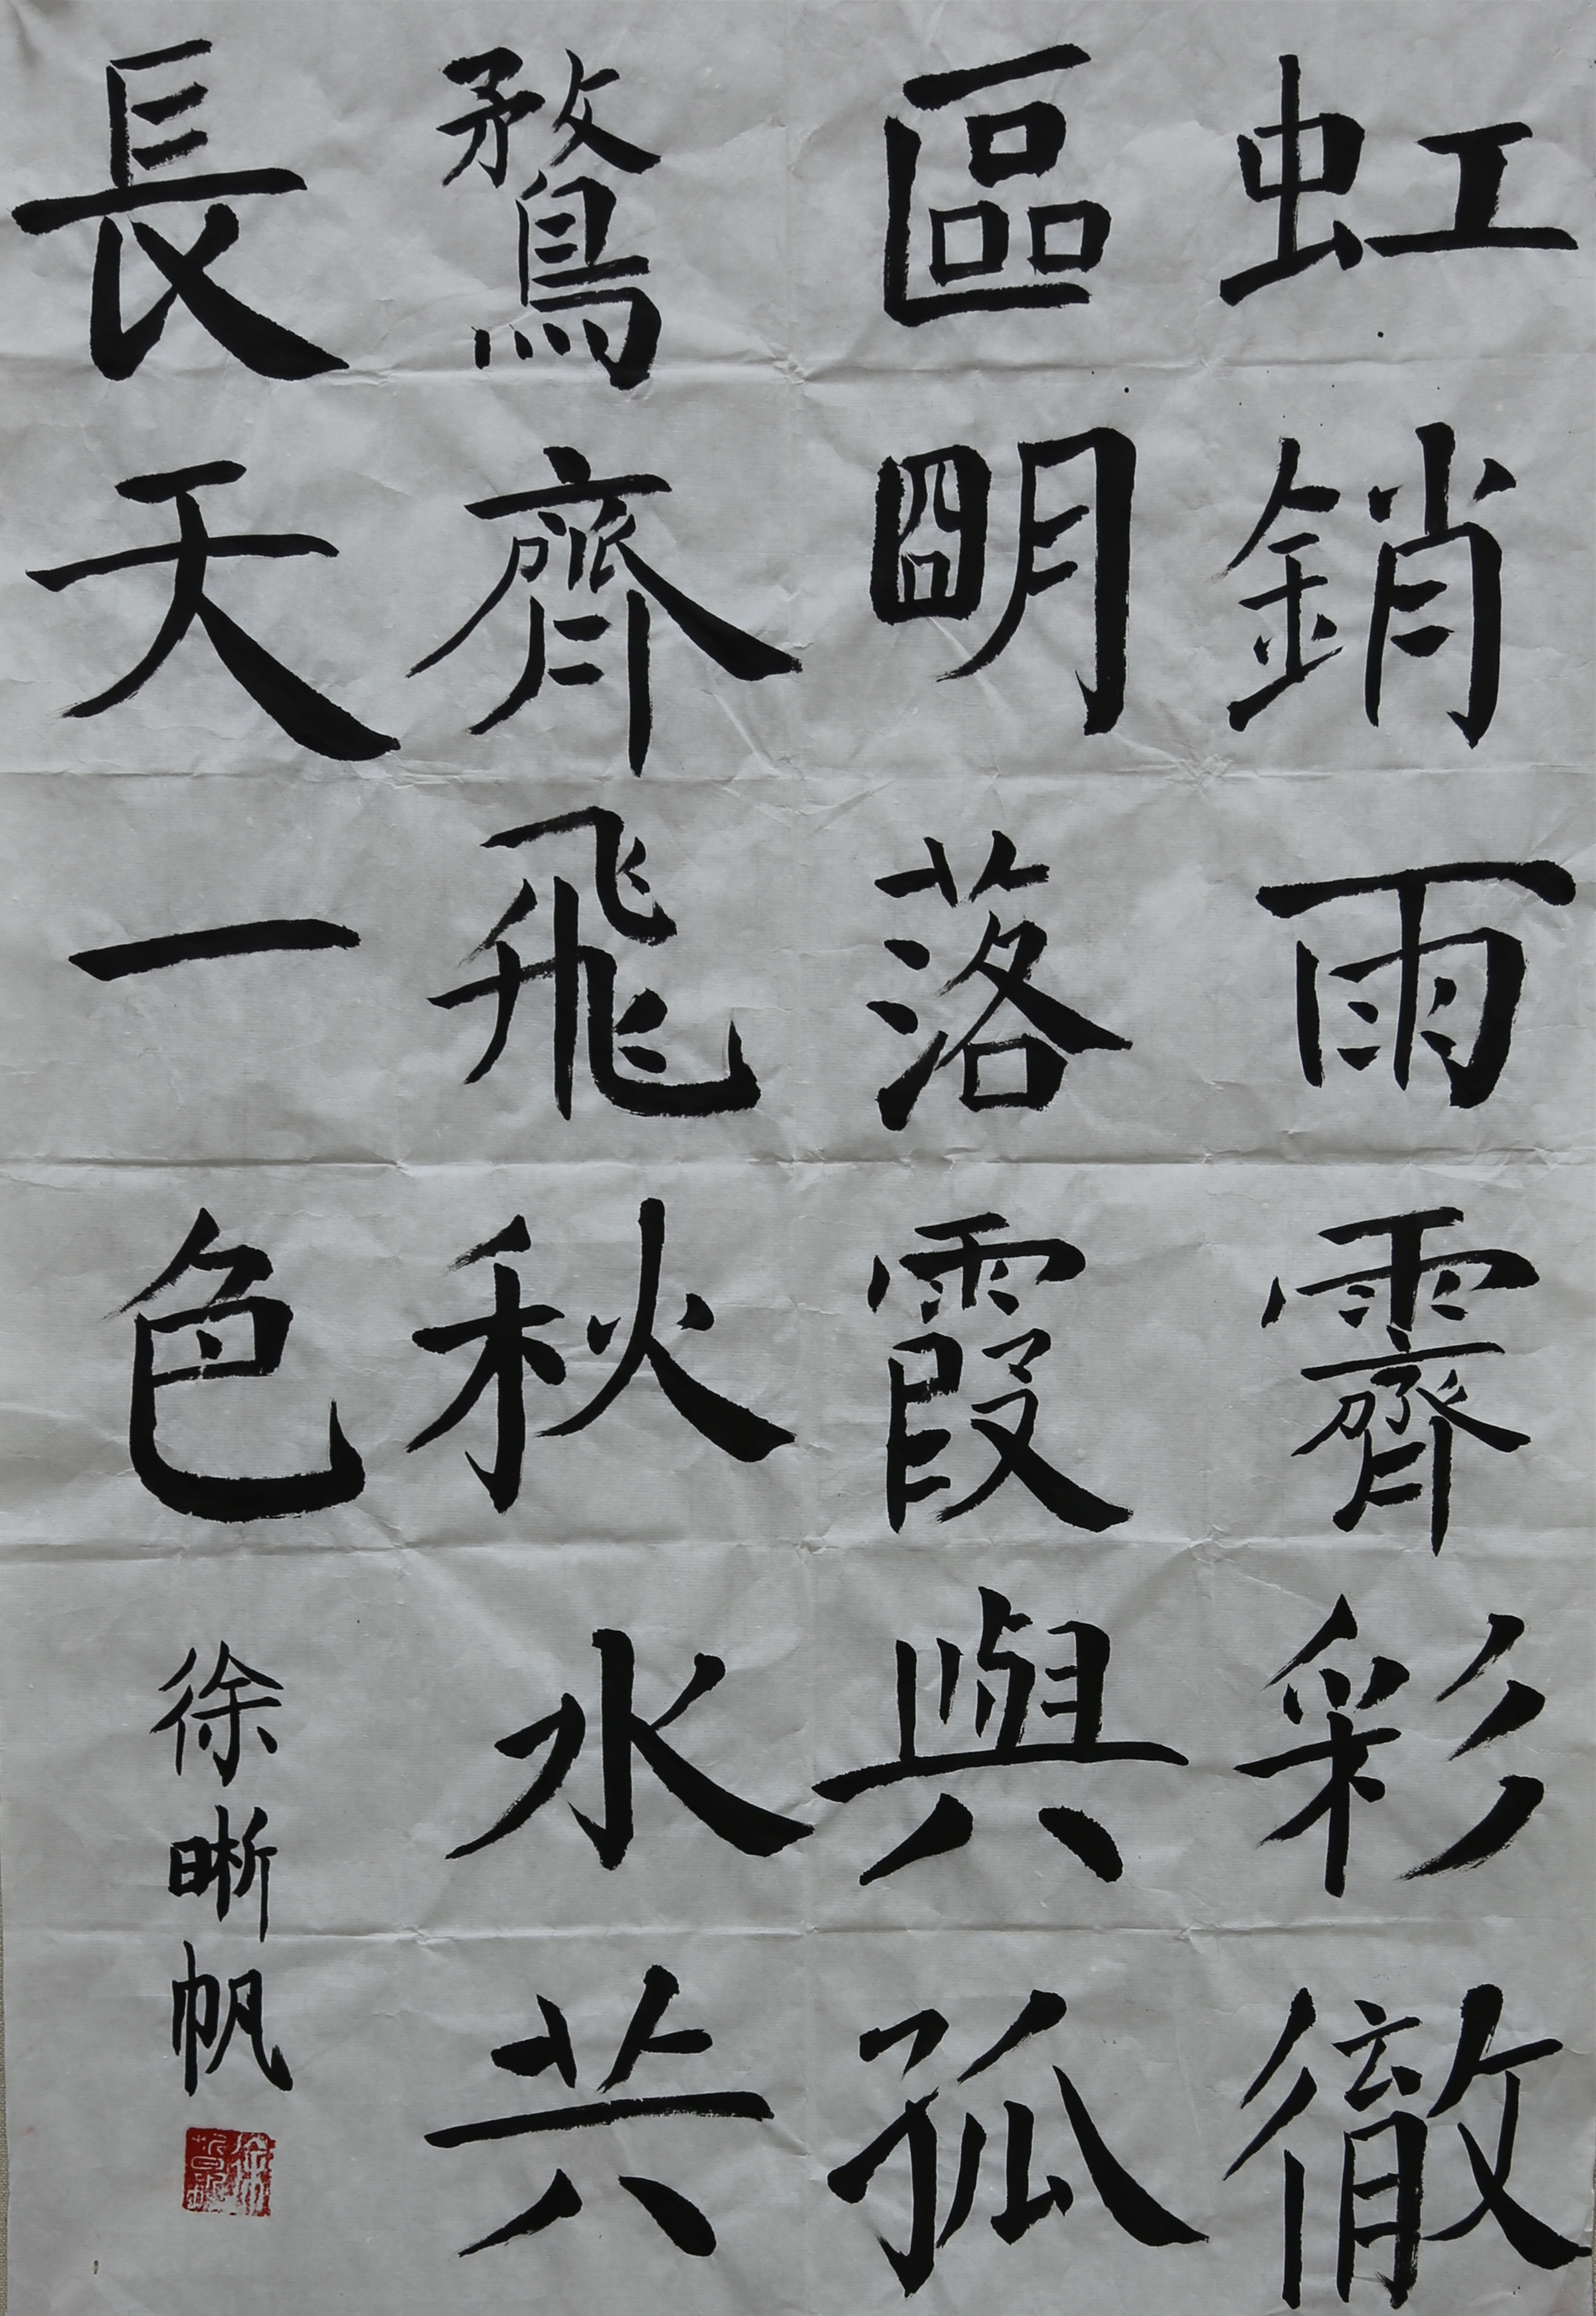 虹銷雨霽彩徹
區明落霞與孤
鶩齊飛秋水共
長天一色
徐晰帆